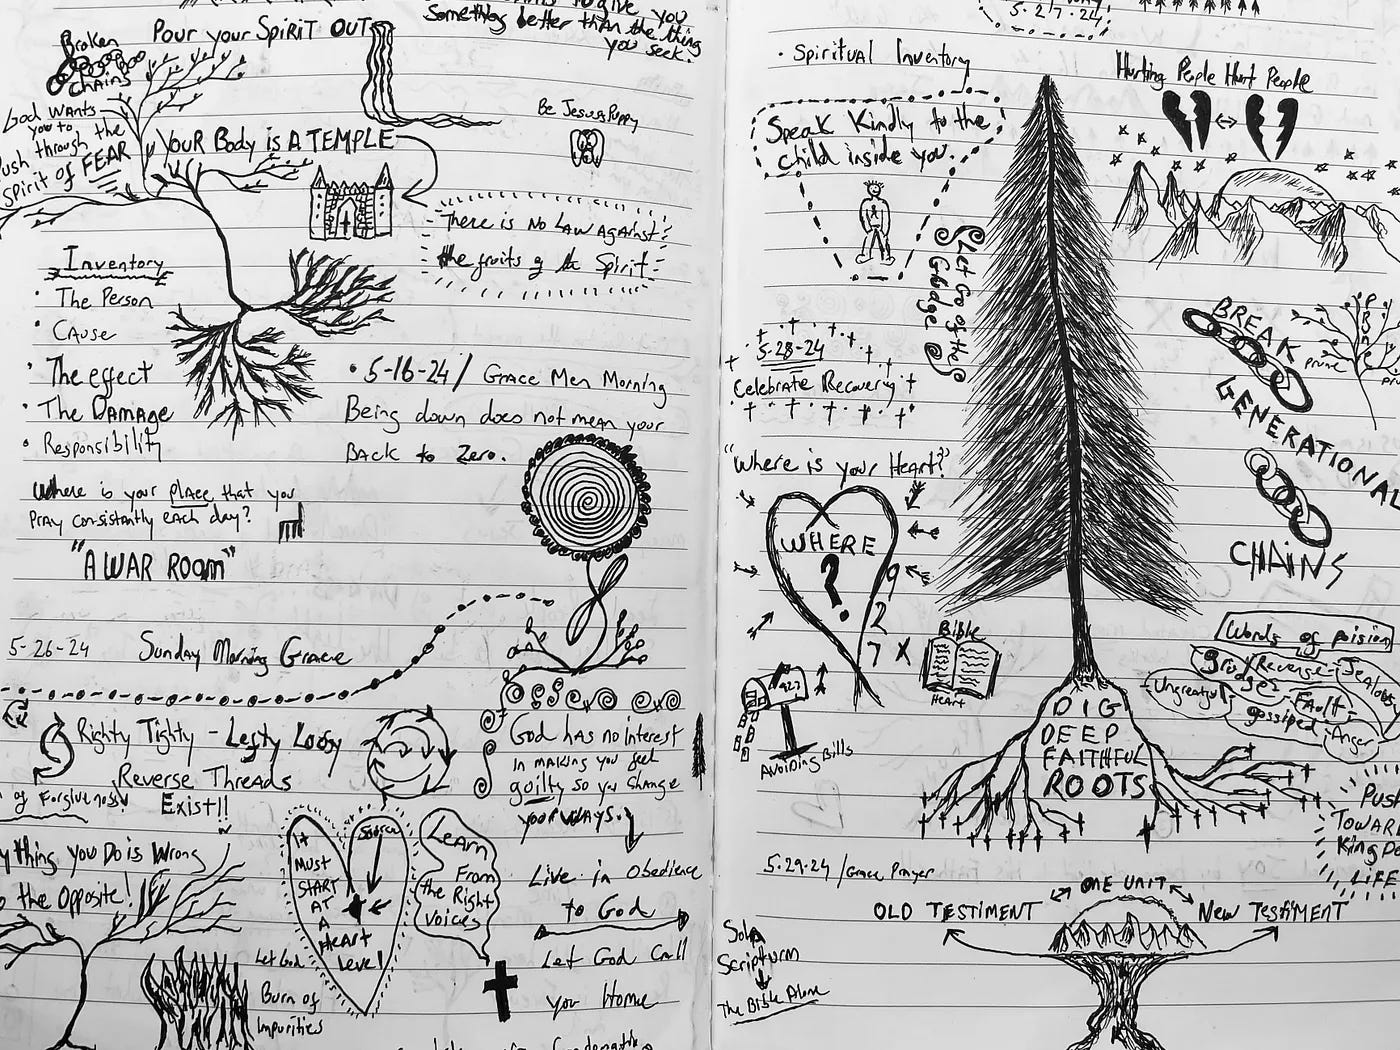 Something better than the thing
you seek.
Pour your SpiRiT OUT
Broken
Chains
God Wants
you to
Push through the
Spirit of FEAR
YouR Body is A TEMPLE
Be Jesus Puppy
There is No Law Against
the fruits of the Spirit
Inventory
• The Person
• Cause
• The effect
• The Damage
• Responsibility
• 5-16-24 / Grace Men Morning
Being down does not mean your
Back to Zero.
Where is your place that you
pray consistantly each day?
"A WAR Room"
5-26-24 Sunday Morning Grace
Righty Tighty - Lefty Loosy
Reverse Threads
Exist!!
of Forgiveness
thing you Do is Wrong
the Opposite!
It
Must
START
AT
A
Heart
Level!
Source
Learn
From
the Right
Voices
Let God
Burn of
Impurities
God has no interest
in making you feel
guilty so you change
your ways.
Live in Obedience
to God
Let God Call
you Home
5-27-24
• Spiritual Inventory
Speak Kindly to the
child inside you.
Let Go of the
Gabage
5-28-24
Celebrate Recovery
"Where is your Heart?"
WHERE
?
9
2
7 X
Bible
Heart
927
Avoiding Bills
Hurting People Hurt People
BREAK
GENERATIONAL
CHAINS
Prune
prune
Words of poision
Grudges
Revenge
Jealousy
Ungreatful
Fault
gossiped
Anger
DIG
DEEP
FAITHFUL
ROOTS
Push
Toward
LIFE
5-29-24 / Grace Prayer
ONE UNIT
OLD TESTIMENT
New TestiMENT
Sola
Scripturm
The Bible Alone